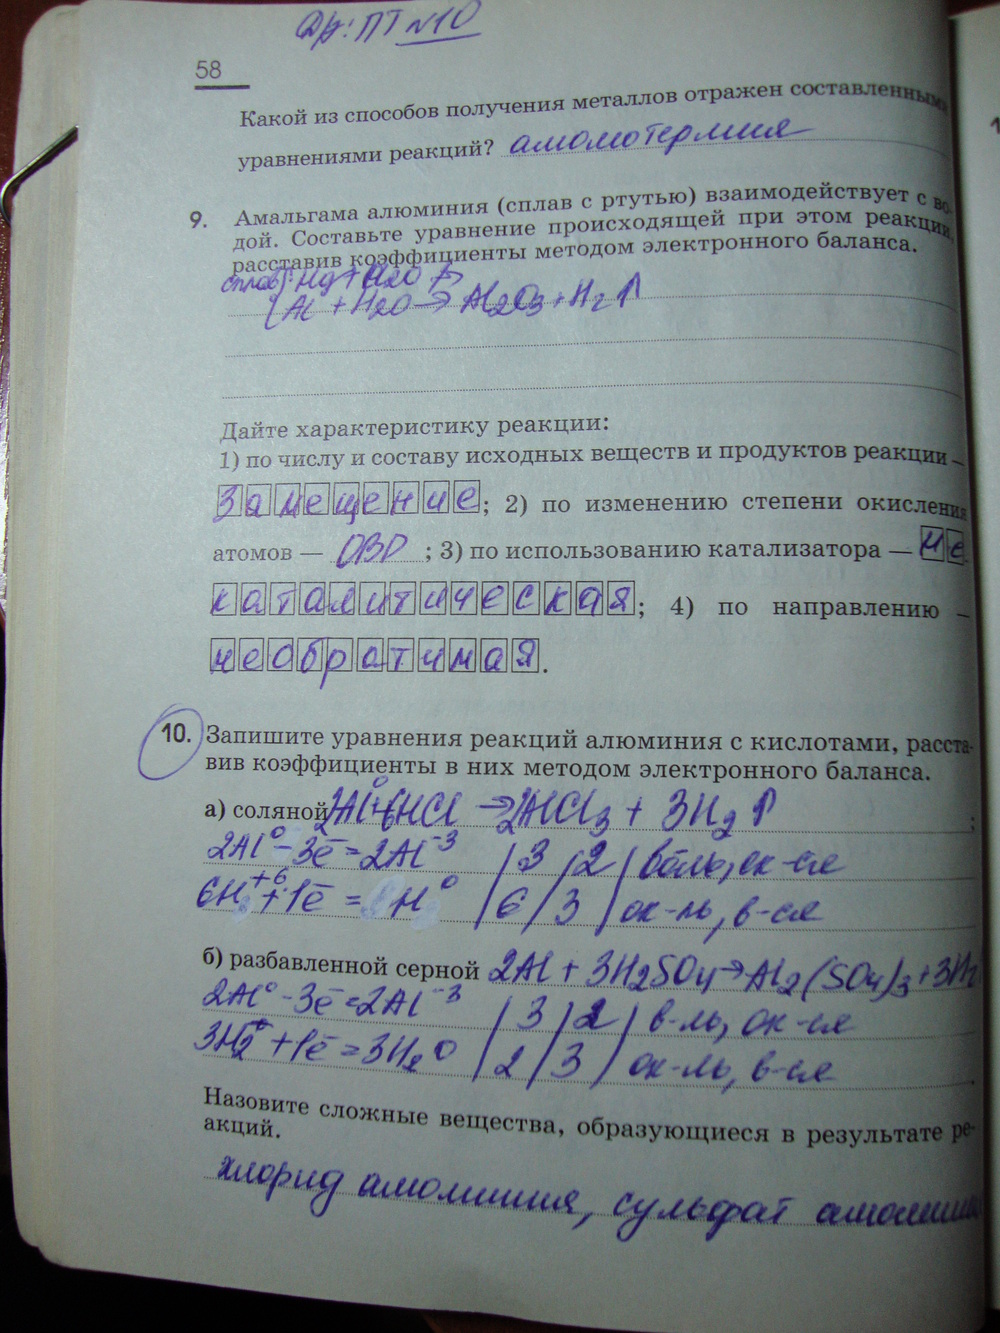 Др: ПТ №10
58
Какой из способов получения металлов отражен составленными
уравнениями реакций? алюмотермия
9. Амальгама алюминия (сплав с ртутью) взаимодействует с во-
дой. Составьте уравнение происходящей при этом реакции,
расставив коэффициенты методом электронного баланса.
сплав: Hg + H2O
Al + H2O → Al2O3 + H2↑
Дайте характеристику реакции:
1) по числу и составу исходных веществ и продуктов реакции –
замещение; 2) по изменению степени окисления
атомов — ОВР; 3) по использованию катализатора — не
каталитическая; 4) по направлению –
необратимая.
10. Запишите уравнения реакций алюминия с кислотами, расста-
вив коэффициенты в них методом электронного баланса.
а) соляной 2Al⁰+6HCl → 2AlCl3 + 3H2↑;
2Al⁰ - 3ē = 2Al⁻³ | 3 | 2 | в-ль, ок-ся
6H⁺⁶ + 1ē = H⁰ | 6 | 3 | ок-ль, в-ся
б) разбавленной серной 2Al + 3H2SO4 → Al2(SO4)3 + 3H2
2Al⁰ - 3ē = 2Al⁻³ | 3 | 2 | в-ль, ок-ся
3H2⁺ + 1ē = 3H2 0 | 2 | 3 | ок-ль, в-ся.
Назовите сложные вещества, образующиеся в результате ре-
акций.
хлорид алюминия, сульфат алюминия